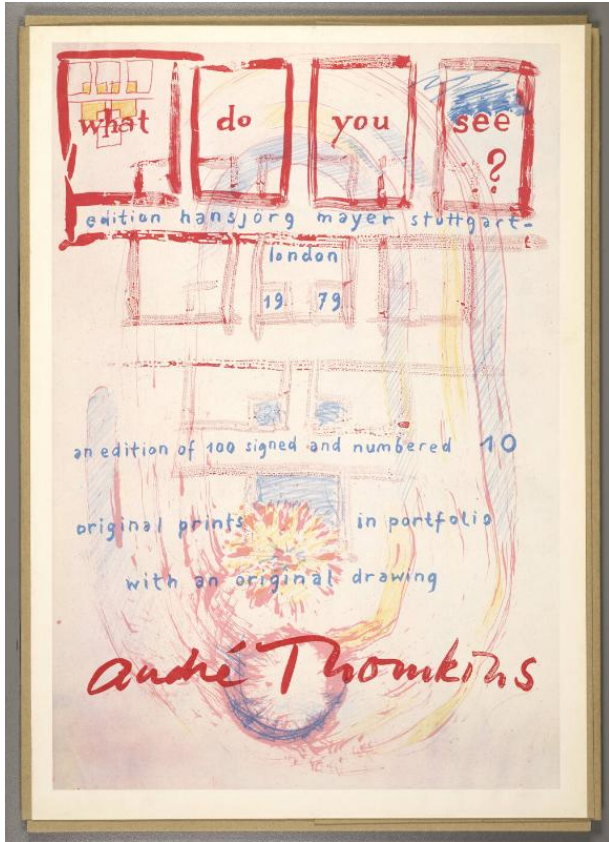 what do you see
?
edition hansjörg mayer stuttgart-
london
19 79
an edition of 100 signed and numbered 10
original prints in portfolio
with an original drawing
andré Thomkins